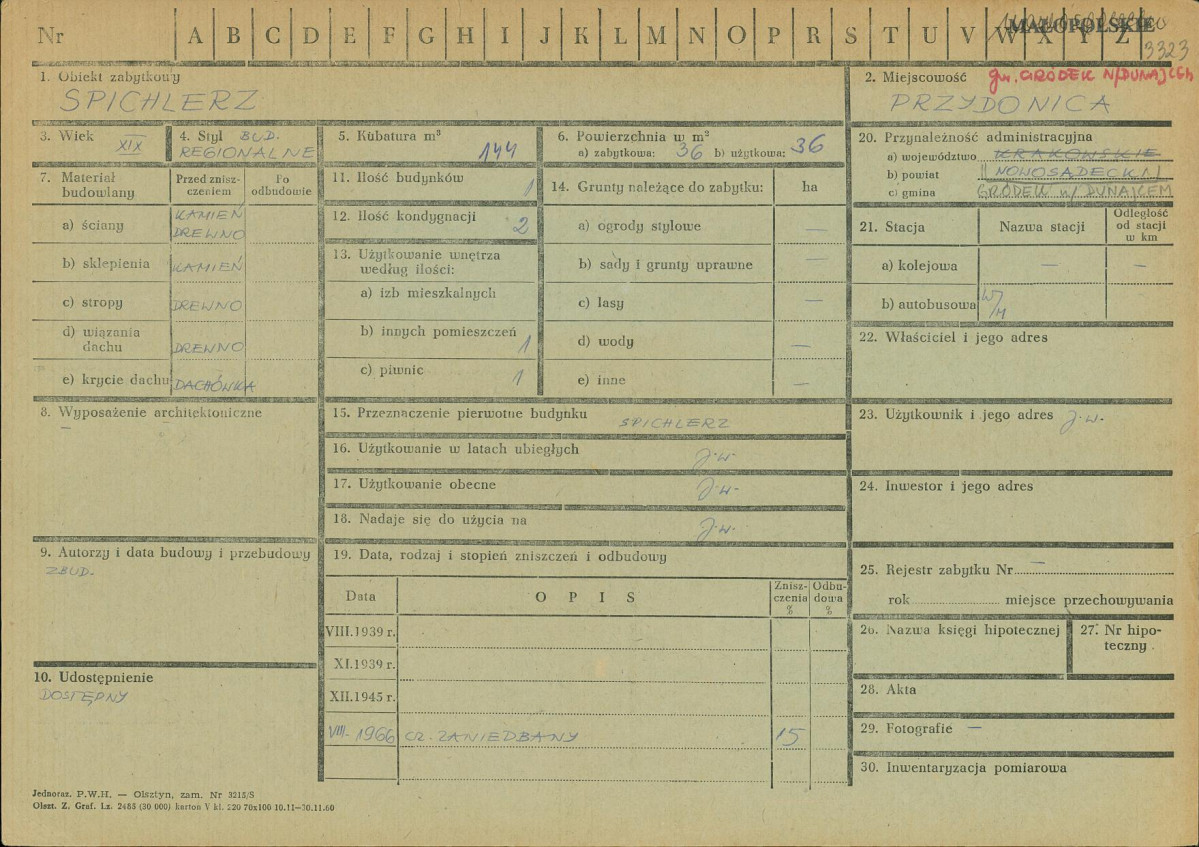 Nr A B C D E F G H I J K L M N O P R S T U V W X Y Z
MAŁOPOLSKIE
3323
1. Obiekt zabytkowy
SPICHLERZ
2. Miejscowość gm. GRÓDEK N/DUNAJCEM
PRZYDONICA
3. Wiek
XIX
4. Styl BUD.
REGIONALNE
5. Kubatura m³
144
6. Powierzchnia w m²
a) zabytkowa: 36 b) użytkowa: 36
7. Materiał budowlany
Przed zniszczeniem
Po odbudowie
a) ściany KAMIEŃ
DREWNO
b) sklepienia KAMIEŃ
c) stropy DREWNO
d) wiązania
dachu DREWNO
e) krycie dachu DACHÓWKA
8. Wyposażenie architektoniczne
—
9. Autorzy i data budowy i przebudowy
ZBUD.
10. Udostępnienie
DOSTĘPNY
11. Ilość budynków 1
12. Ilość kondygnacji 2
13. Użytkowanie wnętrza
według ilości:
a) izb mieszkalnych
b) innych pomieszczeń 1
c) piwnic 1
14. Grunty należące do zabytku: ha
a) ogrody stylowe —
b) sady i grunty uprawne —
c) lasy —
d) wody —
e) inne —
15. Przeznaczenie pierwotne budynku SPICHLERZ
16. Użytkowanie w latach ubiegłych J.w.
17. Użytkowanie obecne J.w.
18. Nadaje się do użycia na J.w.
19. Data, rodzaj i stopień zniszczeń i odbudowy
Data OPIS Zniszczenia % Odbudowa %
VIII.1939 r.
XI.1939 r.
XII.1945 r.
VIII-1966 CZ. ZANIEDBANY 15
20. Przynależność administracyjna
a) województwo KRAKOWSKIE
b) powiat NOWOSĄDECKI
c) gmina GRÓDEK n/ DUNAJCEM
21. Stacja Nazwa stacji Odległość od stacji w km
a) kolejowa — —
b) autobusowa W/M
22. Właściciel i jego adres
23. Użytkownik i jego adres J.w.
24. Inwestor i jego adres
25. Rejestr zabytku Nr —
rok miejsce przechowywania
26. Nazwa księgi hipotecznej
27. Nr hipoteczny
28. Akta
29. Fotografie —
30. Inwentaryzacja pomiarowa
Jednoraz. P.W.H. — Olsztyn, zam. Nr 3215/S
Olszt. Z. Graf. Lz. 2485 (30 000) karton V kl. 220 70x100 10.11—30.11.60